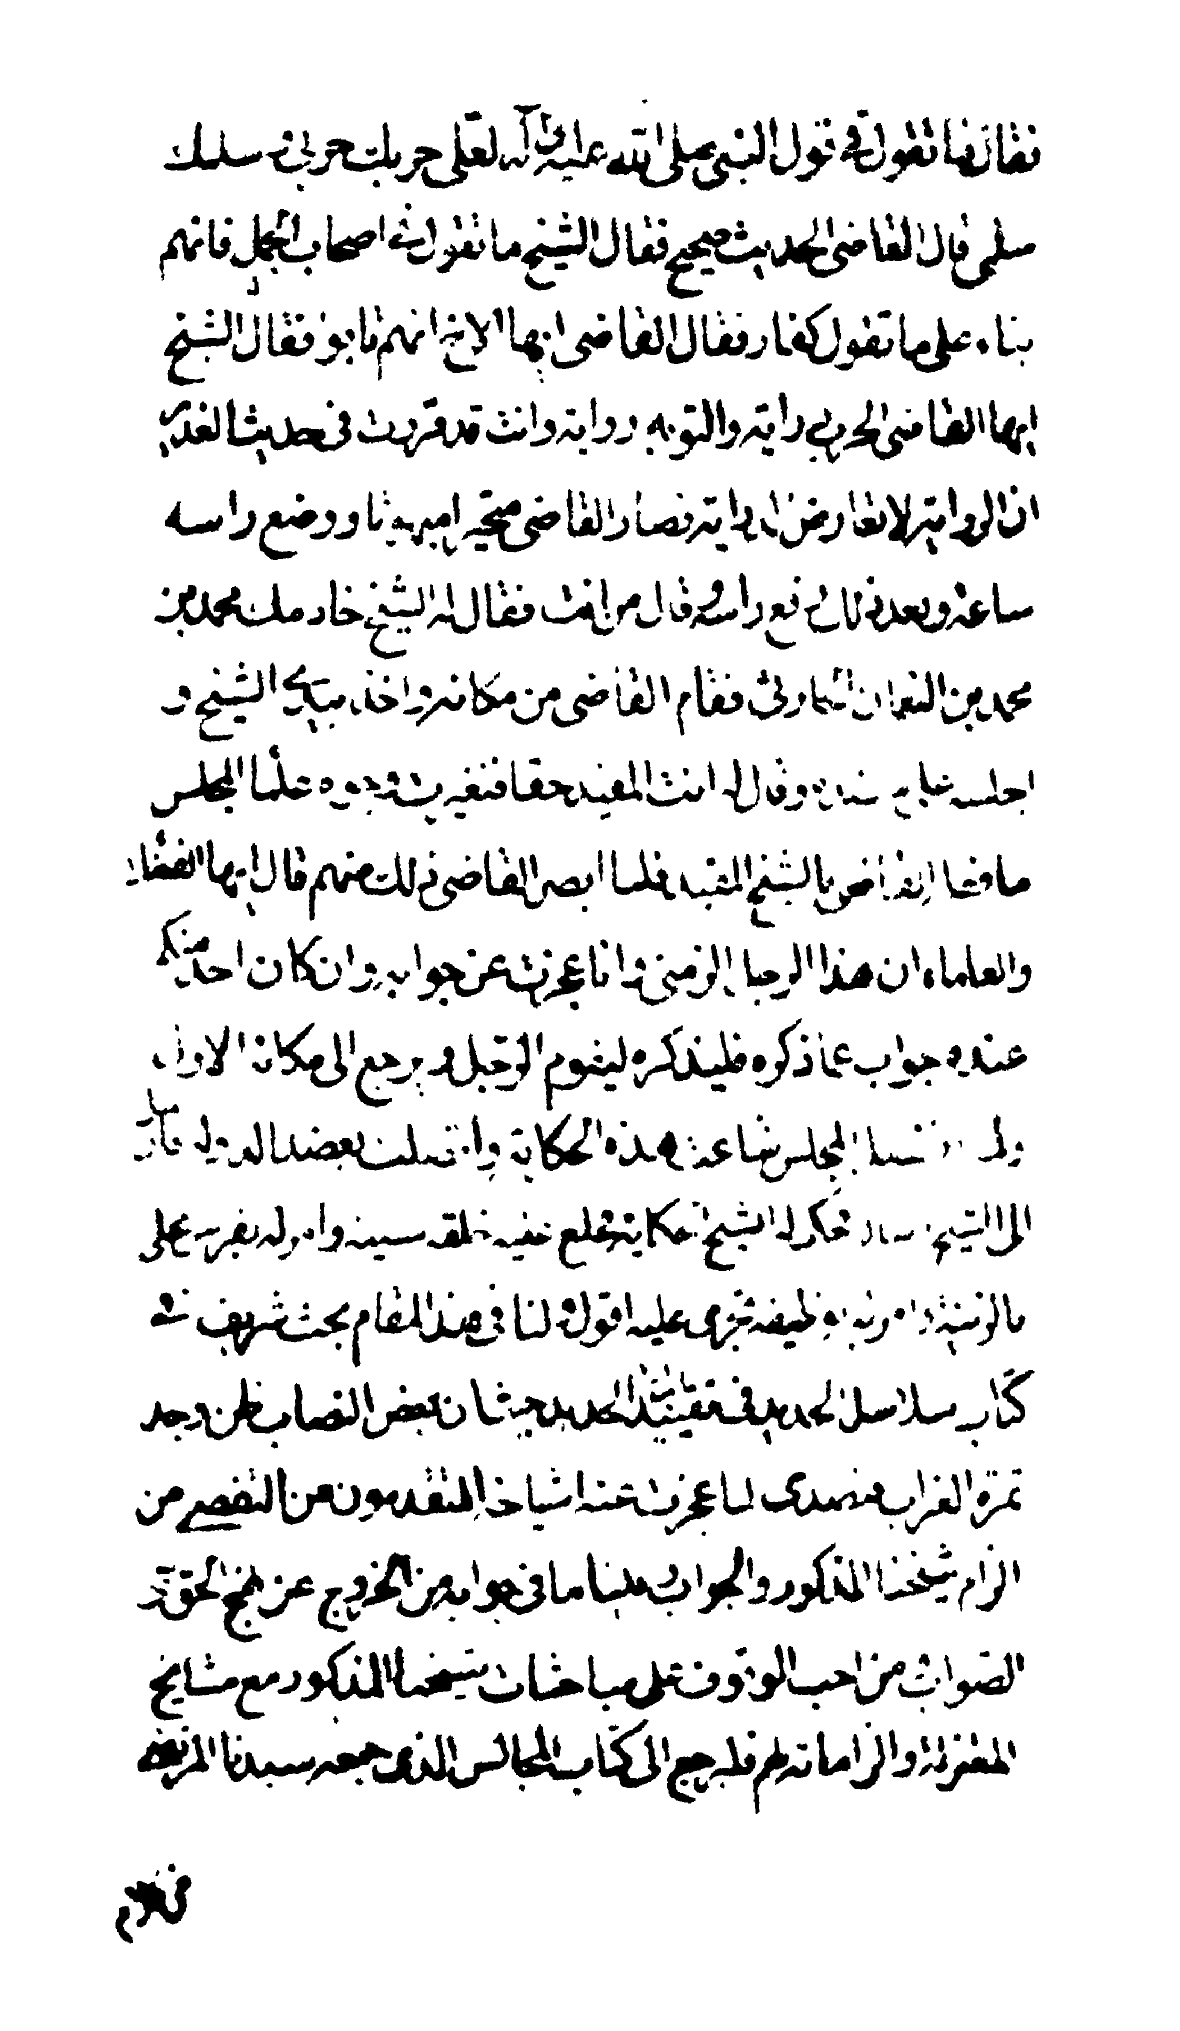 فقال فما تقول في قول النبي صلى الله عليه وآله لعلي حربك حربي وسلمك
سلمي قال القاضي الحديث صحيح فقال الشيخ ما تقول في اصحاب الجمل فانهم
بناء على ما تقول كفار فقال القاضي ايها الاخ انهم تابوا فقال الشيخ
ايها القاضي الحرب دراية والتوبة رواية وانت قد قررت في حديث الغدير
ان الرواية لا تعارض الدراية فصار القاضي متحيرا مبهوتا ووضع راسه
ساعة وبعد ذلك رفع راسه وقال من انت فقال له الشيخ خادمك محمد بن
محمد بن النعمان الحارثي فقام القاضي من مكانه واخذ بيد الشيخ و
اجلسه على مسنده وقال له انت المفيد حقا فتغيرت وجوه علماء المجلس
مما فعل القاضي بالشيخ المفيد فلما ابصر القاضي ذلك منهم قال ايها الفضلاء
والعلماء ان هذا الرجل الزمني وانا عجزت عن جوابه وان كان احد منكم
عنده جواب عما ذكره فليذكره ليقوم الرجل ويرجع الى مكانه الاول
ولما المجلس شاعت هذه الحكاية واتصلت بعضد الدولة فارسل
الى الشيخ فحكى له الشيخ الحكاية فخلع عليه خلعة سنية وامر له بفرس محلى
بالزينة وامر له بوظيفة تجري عليه اقول ولنا في هذا المقام بحث شريف في
كتاب سلاسل الحديد في تقييد ابن ابي الحديد حيث ان بعض النصاب ظن وجد
تمرة الغراب فتصدى لما عجزت عنه اشياخه المتقدمون من التفصي من
الزام شيخنا المذكور والجواب وبينا ما في جوابه من الخروج عن نهج الحق و
الصواب من احب الوقوف على مباحثات شيخنا المذكور مع مشايخ
المعتزلة والزاماته لهم فليرجع الى كتاب المجالس الذي جمعه سيدنا المرتضى
من كلام